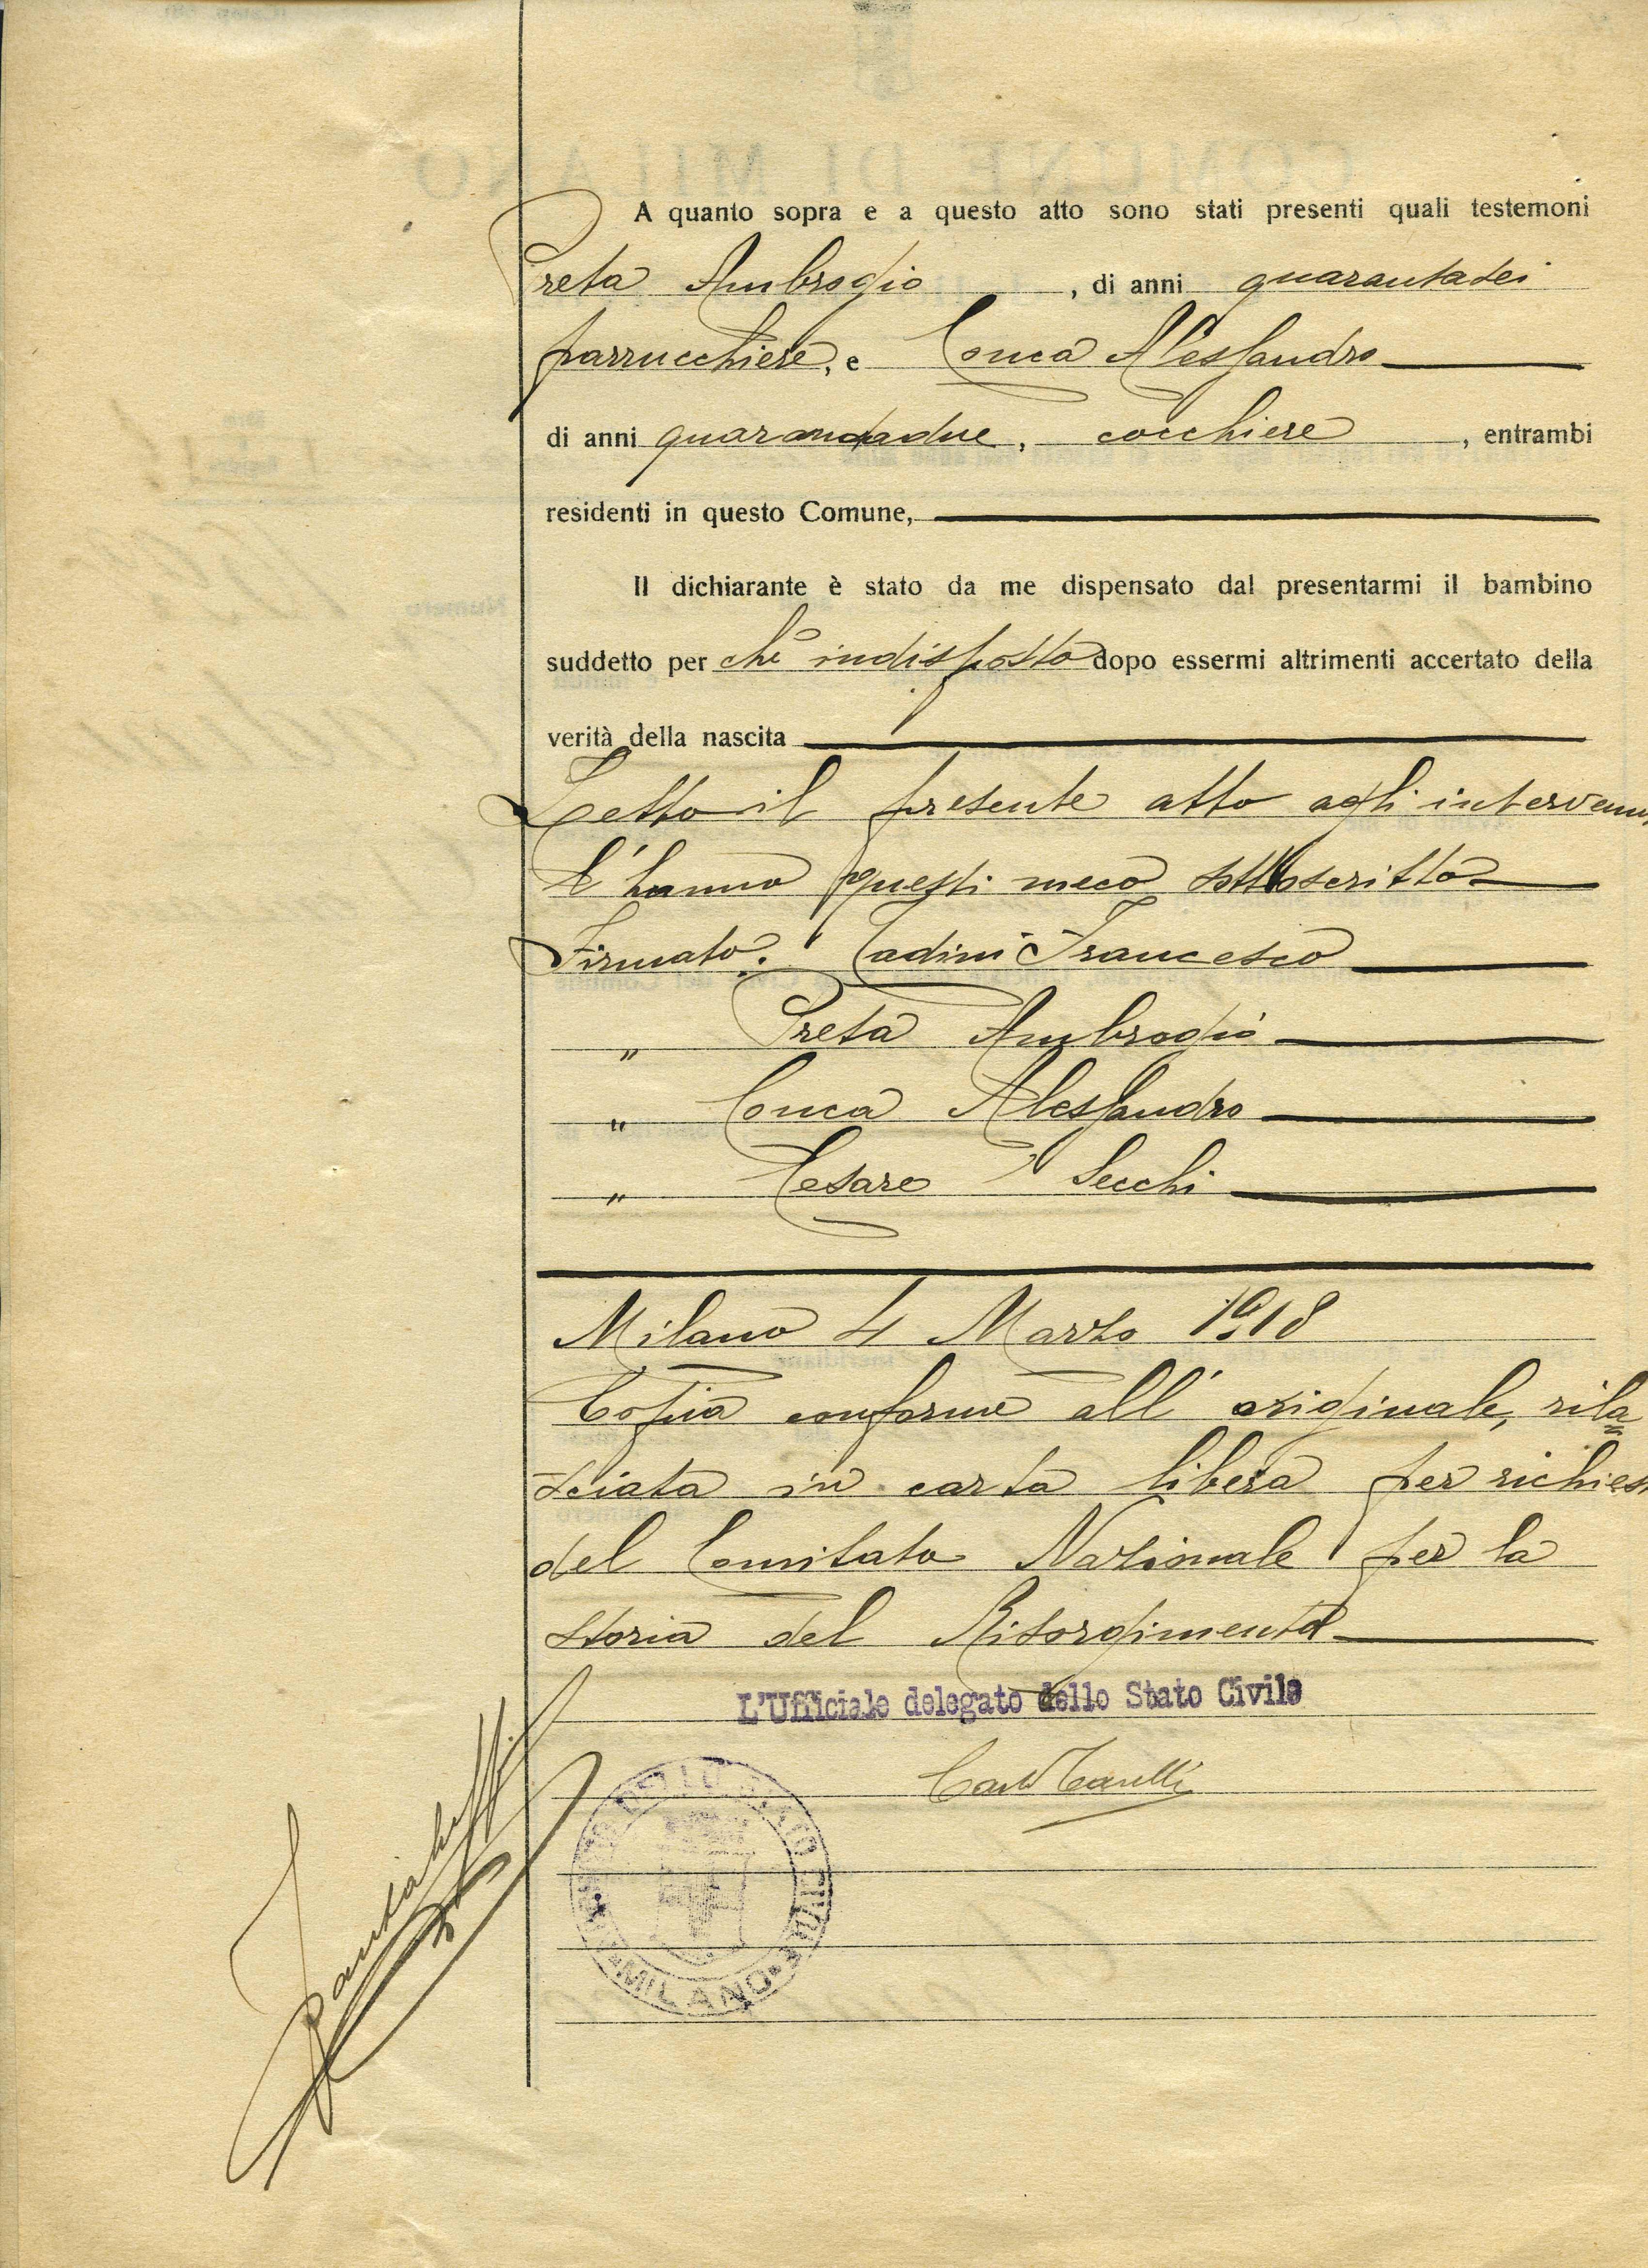 A quanto sopra e a questo atto sono stati presenti quali testemoni
Preta Ambrogio, di anni quarantasei
parrucchiere, e Conca Alessandro
di anni quarantadue, cocchiere, entrambi
residenti in questo Comune,
Il dichiarante è stato da me dispensato dal presentarmi il bambino
suddetto per chè indisposto dopo essermi altrimenti accertato della
verità della nascita
Letto il presente atto agli intervenu
l'hanno questi meco sottoscritto
Firmato: Tadini Francesco
" Preta Ambrogio
" Conca Alessandro
" Cesare Secchi
Milano 4 Marzo 1918
Copia conforme all'originale, rila=
sciata in carta libera per richies
del Comitato Nazionale per la
storia del Risorgimento
L'Ufficiale delegato dello Stato Civile
DELLO STATO CIVILE
MILANO